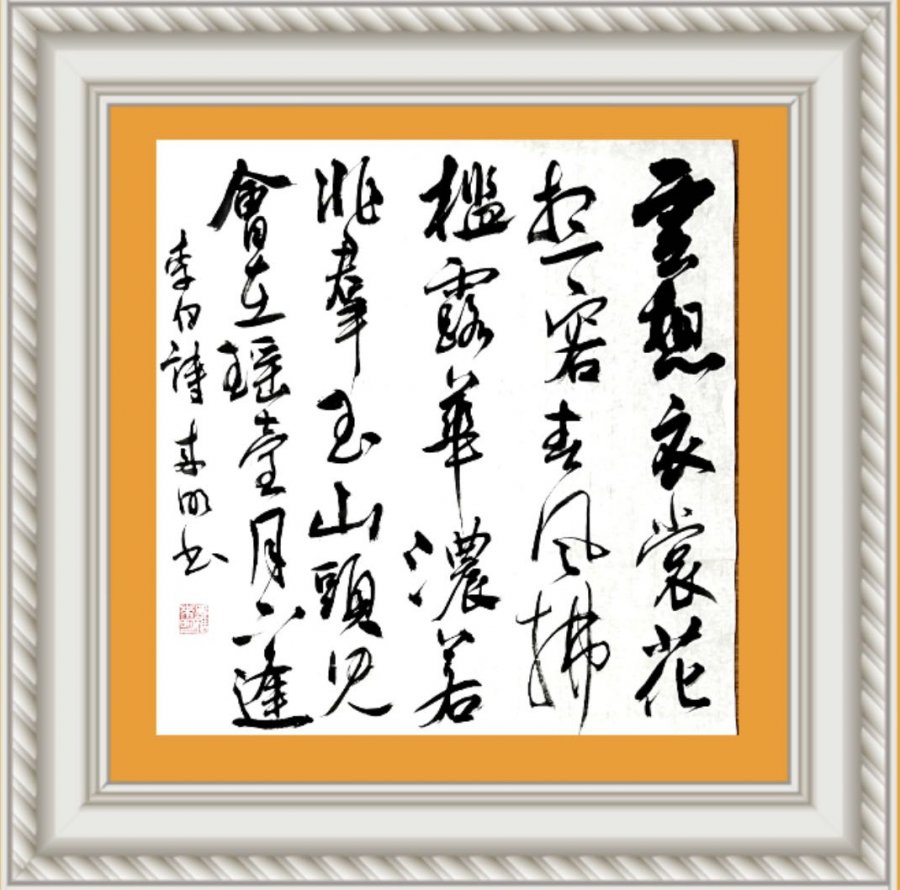 雲想衣裳花
想容春風拂
檻露華濃若
非羣玉山頭見
會在瑤臺月下逢
李白詩 明书